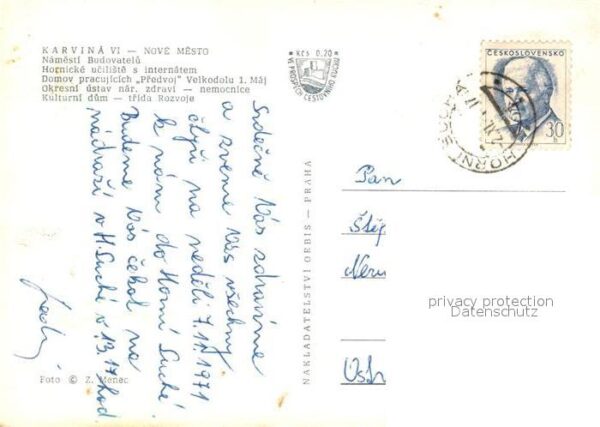 KARVINÁ VI — NOVÉ MĚSTO
Náměstí Budovatelů
Hornické učiliště s internátem
Domov pracujících „Předvoj" Velkodolu 1. Máj
Okresní ústav nár. zdraví — nemocnice
Kulturní dům — třída Rozvoje
Kčs 0,20
VE PROSPĚCH CESTOVNÍHO RUCHU
ČESKOSLOVENSKO
30
h
HORNÍ SUCHÁ
Srdečně Vás zdravíme
a zveme Vás všechny
čtyři na neděli 7.11.1971
k nám do Horní Suché.
Budeme Vás čekat na
nádraží v H. Suché v 13.17 hod
Foto © Z. Menec
NAKLADATELSTVÍ ORBIS — PRAHA
Pan
Štěp
Neru
privacy protection
Datenschutz
Ostr